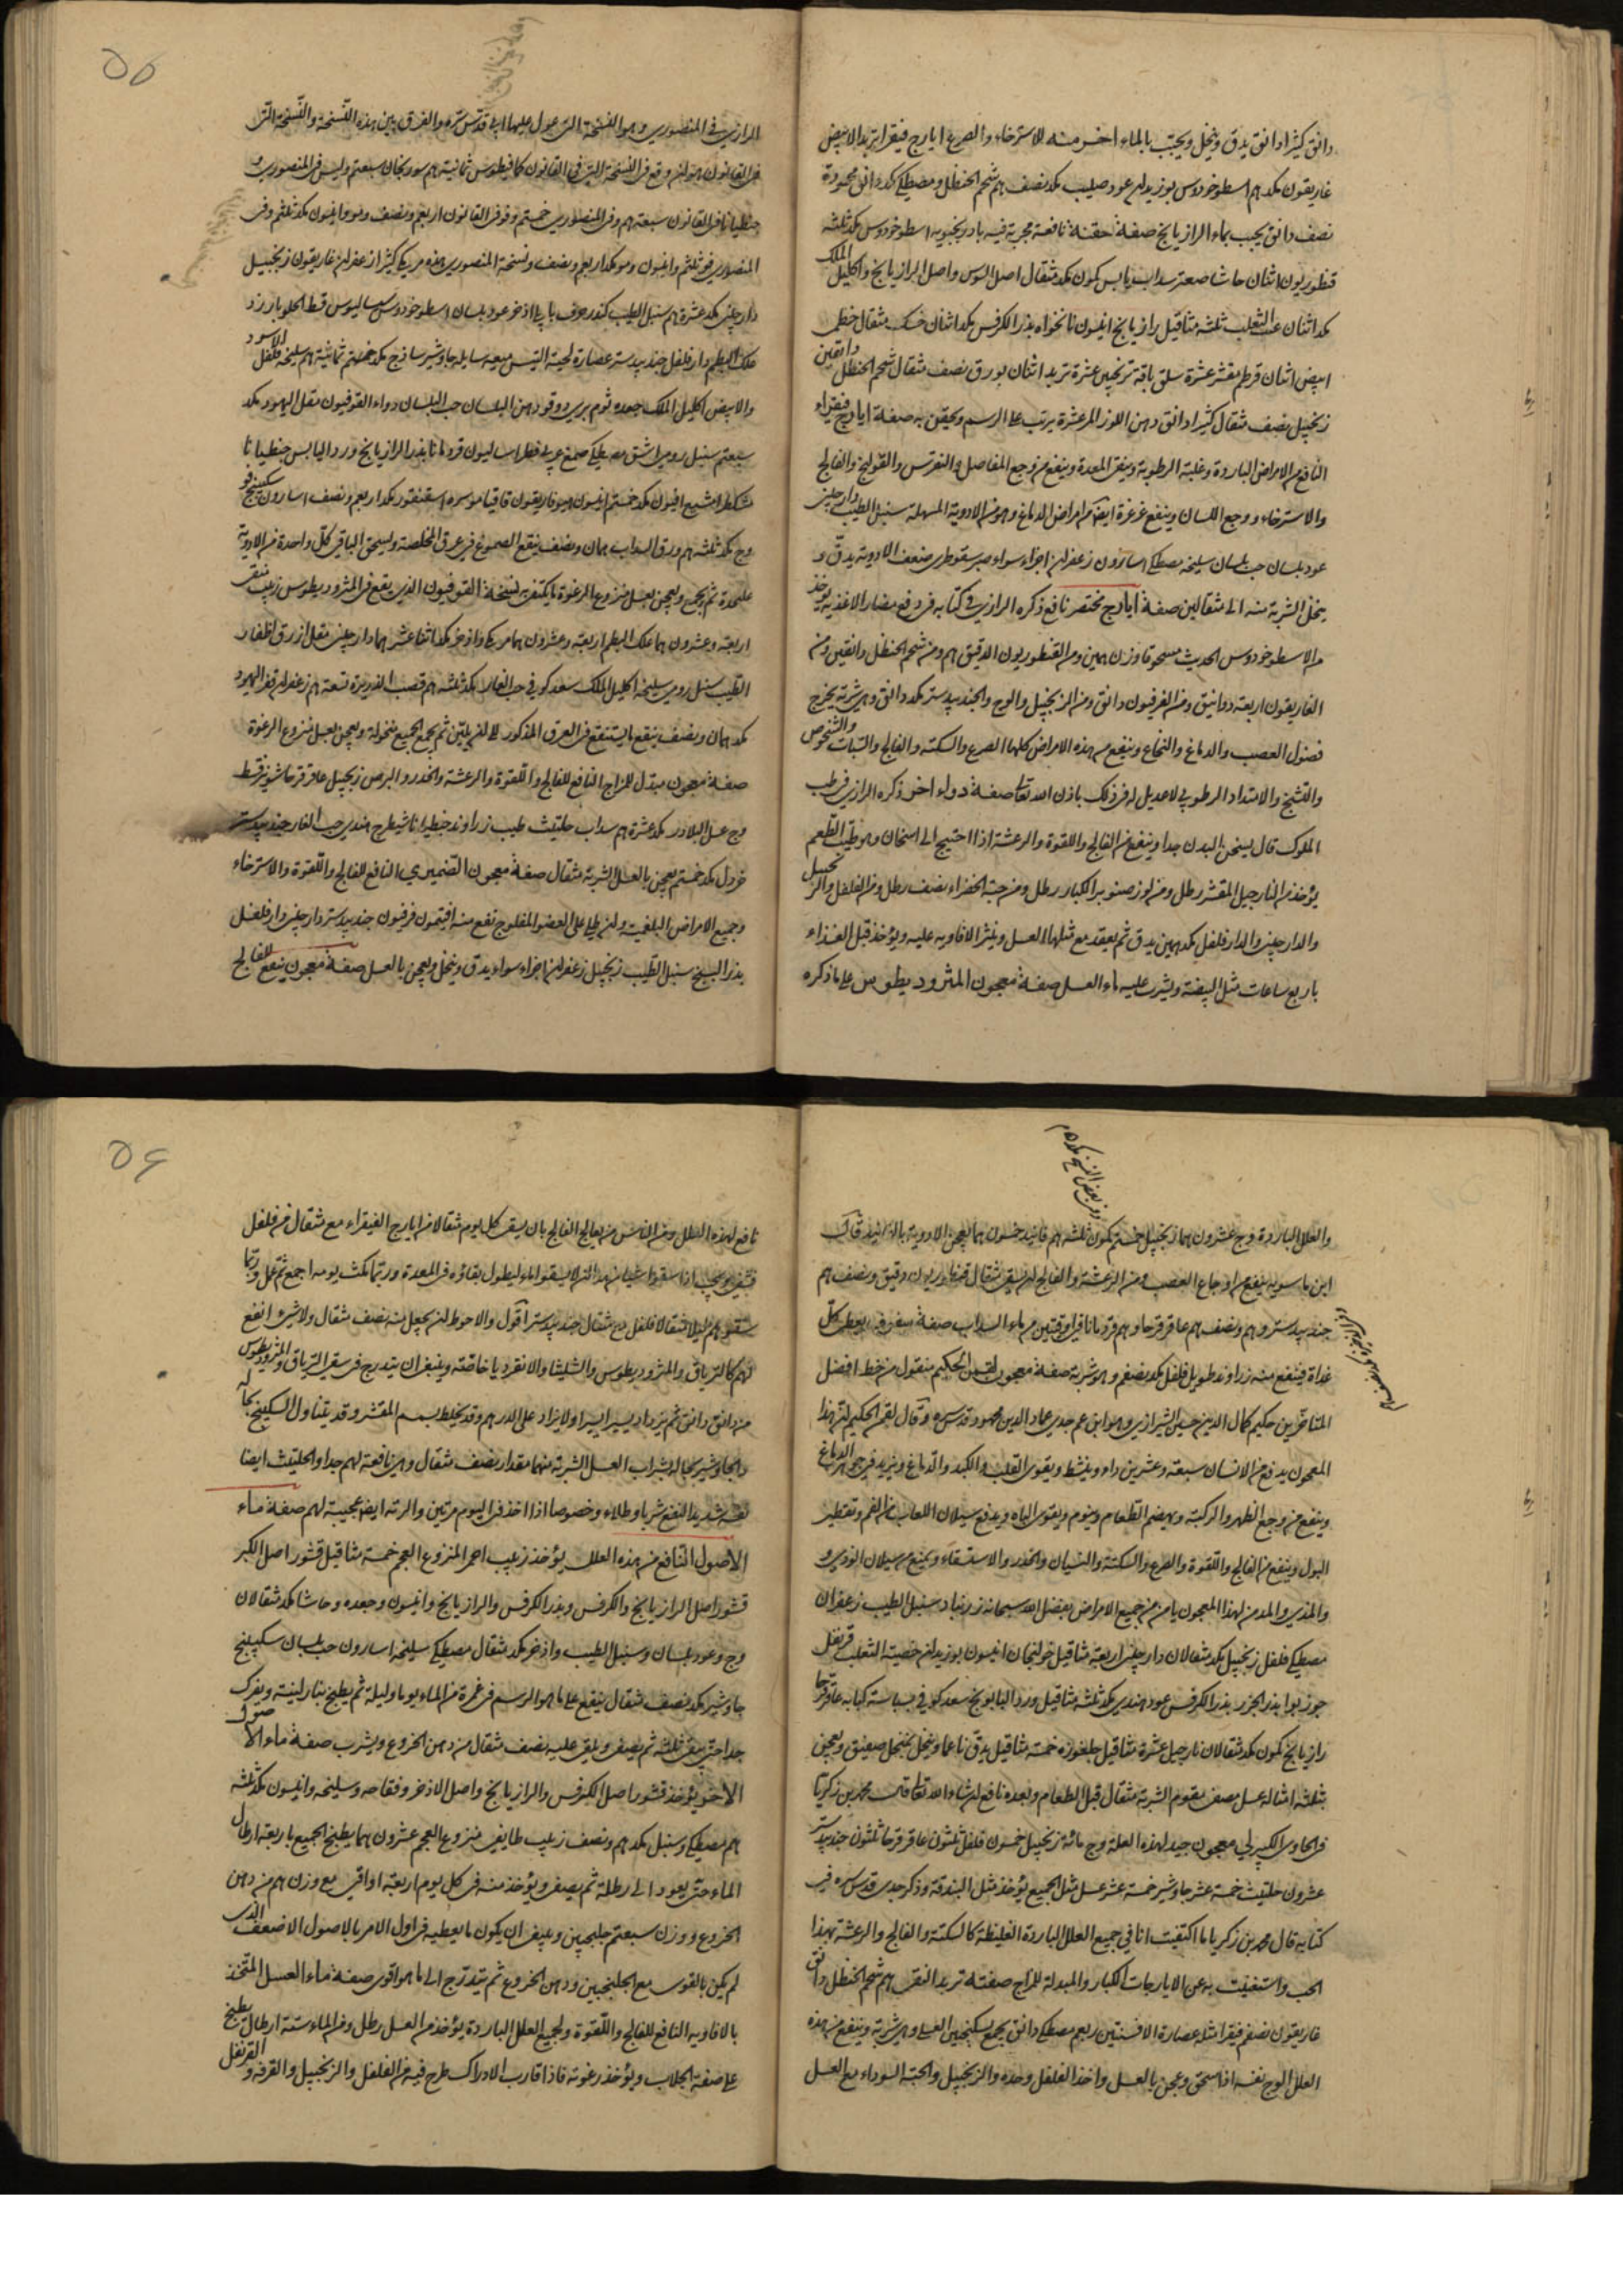 دانق كثيرا دانق يدق وينخل ويحبب بالماء اخر منه للاسترخاء والصرع ايارج فيقرا تربد الابيض
غاريقون مكد هم اسطوخودوس بوزيدان عود صليب مكد نصف هم شحم الحنظل ومصطكى مكد دانق محمودة
نصف دانق يحبب بماء الرازيانج صفة حقنة نافعة مجربة فيه بادرنجبويه اسطوخودوس مكد ثلثه
قنطوريون اثنان حاشا صعتر سداب يابس كمون مكد مثقال اصل السوس واصل الرازيانج واكليل الملك
مكد اثنان عنب الثعلب ثلثه مثاقيل رازيانج انيسون نانخواه بذر الكرفس مكد اثنان حسك مثقال خطمى
ابيض اثنان قرطم مقشر عشرة سلق باقة ترنجبين عشرة تربد اثنان بورق نصف مثقال شحم الحنظل دانقين
زنجبيل نصف مثقال كثيرا دانق دهن اللوز المر عشرة يرتب على الرسم ويحقن به صفة ايارج فيقراء
النافع من الامراض الباردة وغلبة الرطوبة وينقى المعدة وينفع من وجع المفاصل والنقرس والقولنج والفالج
والاسترخاء ووجع اللسان وينفع غرغرة ايضا من امراض الدماغ وهو من الادوية المسهلة سنبل الطيب دارچينى
عود بلسان حب بلسان سليخه مصطكى اسارون زعفران اجزاء سواء صبر سقوطرى ضعف الادوية يدق و
ينخل الشربة منه الى مثقالين صفة ايارج مختصر نافع ذكره الرازى فى كتابه فى دفع مضار الاغذية يوخذ
من الاسطوخودوس الحديث مسحوقا وزن همين ومن القنطوريون الدقيق هم ومن شحم الحنظل دانقين ومن
الغاريقون اربعة دوانيق ومن الفرفيون دانق ومن الزنجبيل والوج والجندبيدستر مكد دانق وهى شربة يخرج
فضول العصب والدماغ والنخاع وينفع من هذه الامراض كلها الصرع والسكتة والفالج والسبات والشخوص
والتشنج والامتداد الرطوبى لا عديل له فى ذلك باذن الله تعالى صفة دواء اخر ذكره الرازى فى طب
الملوك قال يسخن البدن جدا وينفع من الفالج واللقوة والرعشة اذا احتيج الى اسخان وهو طيب الطعم
يؤخذ من النارجيل المقشر رطل ومن لوز صنوبر الكبار رطل ومن حبة الخضراء نصف رطل ومن الفلفل والزنجبيل
والدارچينى والدار فلفل مكد همين يدق ثم يعقد مع مثلها العسل وينثر الافاويه عليه ويؤخذ قبل الغذاء
باربع ساعات مثل البيضة ويشرب عليه ماء العسل صفة معجون المثروديطوس على ما ذكره
الرازى فى المنصورى وهو النسخة التى عول عليها ابى قدس سره والفرق بين هذه النسخة والنسخة التى
فى القانون هو انه وقع فى النسخة التى فى القانون كمافيطوس ثمانية هم سورنجان سبعتهم وليس فى المنصورى و
جنطيانا فى القانون سبعة هم وفى المنصورى خمستهم وفو فى القانون اربعهم ونصف ومو وانيسون مكد ثلثهم وفى
المنصورى فو ثلثهم وانيسون ومو مكد اربعهم ونصف ونسخة المنصورى هذه مر يكى كثيرا زعفران غاريقون زنجبيل
دارچينى مكد عشرة هم سنبل الطيب كندر حرف بابلى اذخر عود بلسان اسطوخودوس سساليوس قسط الحلو بارزد
علك البطم دار فلفل جندبيدستر عصارة لحية التيس ميعه سايله جاوشير ساذج مكد ثمانية هم سليخه فلفل الاسود
والابيض اكليل الملك جعده ثوم برى دوقو دهن البلسان حب البلسان دواء القوفيون مقل اليهود مكد
سبعتهم سنبل رومى اشق مصطكى صمغ عربى فطراساليون قردمانا بذر الرازيانج ورد اليابس جنطيانا
مشكطرامشيع افيون مكد خمستهم انيسون هيوفاريقون قاقيا مو سره اسقنقور مكد اربعهم ونصف اسارون سكبينج فو
وج مكد ثلثه هم ورق السداب همان ونصف ينقع الصموغ فى عرق المخلصة ويسحق الباقى كل واحدة من الادوية
عليحدة ثم يجمع ويعجن بعسل منزوع الرغوة ما يكتفى به نسخة القوفيون الذى يقع فى المثروديطوس زبيب منقى
اربعة وعشرون هما علك البطم اربعة وعشرون هما مر يكى واذخر مكد اثنا عشر هما دارچينى مقل ازرق اظفار
الطيب سنبل رومى سليخه اكليل الملك سعد كوفى حب الغار مكد ثلثه هم قصب الذريرة تسعة هم زعفران قفر اليهود
مكد همان ونصف ينقع ما يستنقع فى العرق المذكور الى ان يلين ثم يجمع الجميع منخولة ويعجن بعسل منزوع الرغوة
صفة معجون مبدل للمزاج النافع للفالج واللقوة والرعشة والخدر والبرص زنجبيل عاقرقرحا شونيز قسط
وج عسل البلادر مكد عشرة هم سداب حلتيت طيب زراوند جنطيانا شيطرج هندى حب الغار جندبيدستر
خردل مكد خمستهم يعجن بالعسل الشربة مثقال صفة معجون الضميرى النافع للفالج واللقوة والاسترخاء
وجميع الامراض البلغمية وان طلى على العضو المفلوج نفع منه افيتمون فرفيون جندبيدستر دارچينى دار فلفل
بذر البنج سنبل الطيب زنجبيل زعفران اجزاء سواء يدق وينخل ويعجن بالعسل صفة معجون ينفع للفالج
وفى بعض النسخ مكد ه هم
والعلل الباردة وج عشرون هما زنجبيل خمستهم كمون ثلثه هم فانيد خمسون هما يعجن الادوية بالفانيد قال
ابن ماسويه ينفع من اوجاع العصب ومن الرعشة والفالج ان يسقى مثقال قنطوريون دقيق ونصف هم
جندبيدستر وهم ونصف هم عاقرقرحا وهم قردمانا فى اوقيتين من ماء السداب صفة سفوف يعطى كل
غداة فينفع منه زراوند طويل فلفل مكد نصفهم وهو شربة صفة معجون لقمن الحكيم منقول من خط افضل
المتأخرين حكيم كمال الدين حسين الشيرازى وهو ابن عم جدى عماد الدين محمود قدس سره وقال لقمن الحكيم ان هذا
المعجون يدفع من الانسان سبعة وعشرين داء وينشط ويقوى القلب والكبد والدماغ ويزيد فى جوهر الدماغ
وينفع من وجع الظهر والركبة ويهضم الطعام وينوم ويقوى الباه ويدفع سيلان اللعاب من الفم وتقطير
البول وينفع من الفالج واللقوة والصرع والسكتة والنسيان والخدر والاستسقاء ويمنع من سيلان الودى و
والمذى والمدمن لهذا المعجون يامن من جميع الامراض بفضل الله سبحانه زرنباد سنبل الطيب زعفران
مصطكى فلفل زنجبيل مكد مثقالان دارچينى اربعة مثاقيل خولنجان انيسون بوزيدان خصية الثعلب قرنفل
جوز بوا بذر الجزر بذر الكرفس عود هندى مكد ثلثه مثاقيل ورد البابونج سعد كوفى بسباسة كبابه عاقرقرحا
رازيانج كمون مكد مثقالان نارجيل عشرة مثاقيل جلغوزه خمسه مثاقيل يدق ناعما وينخل بمنخل صفيق ويعجن
بثلثه امثاله عسل مصفى مقوم الشربة مثقال قبل الطعام وبعده نافع ان شاء الله تعالى قال محمد بن زكريا
فى الحاوى الكبير لى معجون جيد لهذه العلة وج مائة زنجبيل خمسون فلفل ثلثون عاقرقرحا ثلثون جندبيدستر
عشرون حلتيت خمسة عشر جاوشير خمسة عشر عسل مثل الجميع يؤخذ مثل البندقة وذكر جدى قدس سره فى
كتابه قال محمد بن زكريا ما اكتفيت انا فى جميع العلل الباردة الغليظة كالسكتة والفالج والرعشة بهذا
الحب واستغنيت به عن الايارجات الكبار والمبدلة للمزاج صفته تربد النقى هم شحم الحنظل دانق
غاريقون نصفهم فيقرا مثله عصارة الافسنتين ربعهم مصطكى دانق يجمع بسكنجبين العسلى وهى شربة وينفع من هذه
العلل الوج نفسه اذا سحق وعجن بالعسل واخذ الفلفل وحده والزنجبيل والحبة السوداء مع العسل
نافع لهذه العلل ومن الناس من يعالج الفالج بان يسقى كل يوم مثقالا من ايارج الفيقراء مع مثقال من فلفل
فشفى ويجب اذا سقوا شيئا من هذا ان لا يسقوا ماء ليطول بقاؤه فى المعدة وربما مكث يومه اجمع ثم عمل وربما
سقوهم ليلا مثقالا فلفل مع مثقال جندبيدستر اقول والاحوط ان يجعل منه نصف مثقال ولا شىء انفع
لهم كالترياق والمثروديطوس والشليثا والانقرديا خاصة وينبغى ان يتدرج فى سقى الترياق والمثروديطوس
من دانق دانق ثم يزداد يسيرا يسيرا ولا يزاد على الدرهم وقد يخلط بسمسم المقشر وقد يتناول السكبينج بحاله
والجاوشير بحاله بشراب العسل الشربة منهما مقدار نصف مثقال وهى نافعة لهم جدا والحلتيت ايضا
نفعه شديد النفع شربا وطلاء وخصوصا اذا اخذ فى اليوم مرتين والرته ايضا عجيبة لهم صفة ماء
الاصول النافع من هذه العلل يؤخذ زبيب احمر المنزوع العجم خمسة مثاقيل قشور اصل الكبر
قشور اصل الرازيانج والكرفس وبذر الكرفس والرازيانج وانيسون وجعده وحاشا مكد مثقالان
وج وعود بلسان وسنبل الطيب واذخر مكد مثقال مصطكى سليخه اسارون حب بلسان سكبينج
جاوشير مكد نصف مثقال ينقع على ما هو الرسم فى غمرة من الماء يوما وليلة ثم يطبخ بنار لينة ويمرك
جدا حتى يبقى ثلثه ثم يصفى ويلقى عليه نصف مثقال من دهن الخروع ويشرب صفة ماء الاصول
الاخر يؤخذ قشور اصل الكرفس والرازيانج واصل الاذخر وفقاحه وسليخه وانيسون مكد ثلثه
هم مصطكى وسنبل مكد هم ونصف زبيب طايفى منزوع العجم عشرون هما يطبخ الجميع باربعة ارطال
الماء حتى يعود الى رطله ثم يصفى ويؤخذ منه فى كل يوم اربعة اواقى مع وزن هم من دهن
الخروع ووزن سبعتهم جلنجبين وينبغى ان يكون ما يعطيه فى اول الامر بالاصول الاضعف الذى
لم يكن بالقوى مع الجلنجبين ودهن الخروع ثم يتدرج الى ما هو اقوى صفة ماء العسل المتخذ
بالافاويه النافع للفالج واللقوة ولجميع العلل الباردة يؤخذ من العسل رطل ومن الماء ستة ارطال يطبخ
على صفة الجلاب ويؤخذ رغوته فاذا قارب الادراك طرح فيه من الفلفل والزنجبيل والقرفة والقرنفل